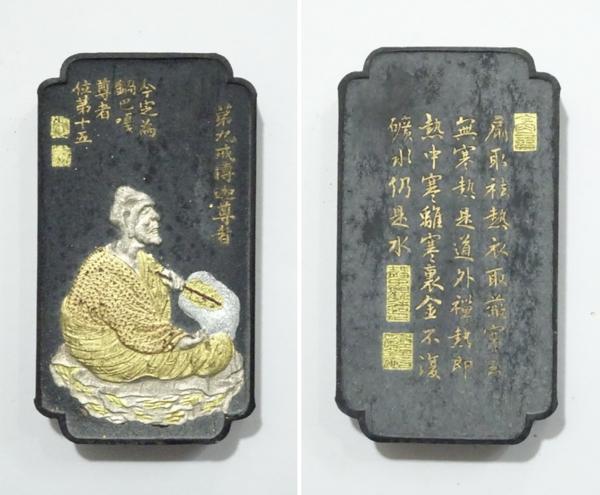 第九戒博迦尊者
今定為
鍋巴嘎
尊者
位第十五
扇取祛熱衣取蔽寒
無寒熱是道外襤熱即
熱中寒離寒裏金不復
礦水仍是水